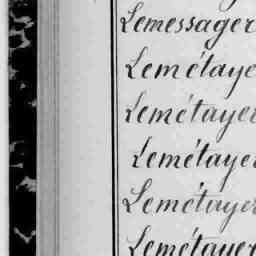 Lemessager
Lemétaye
Lemétayer
Lemétayer
Lemétayer
Lemétayer